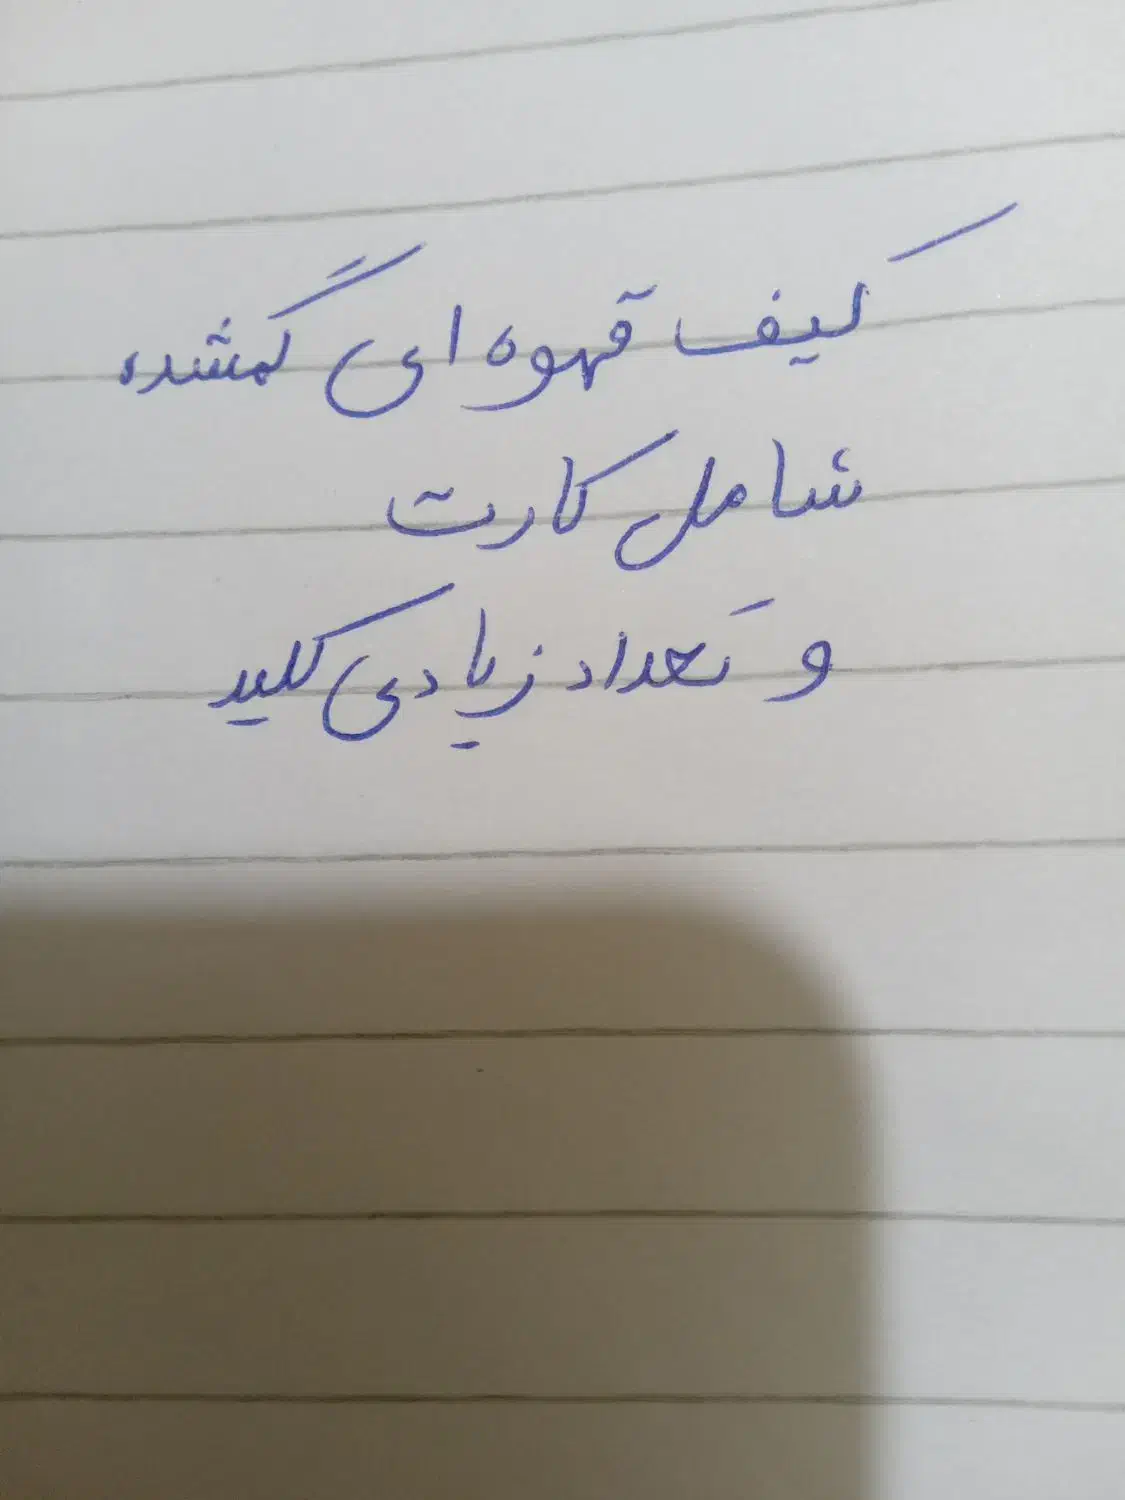 کیف قهوه ای گمشده
شامل کارت
و تعداد زیادی کلید